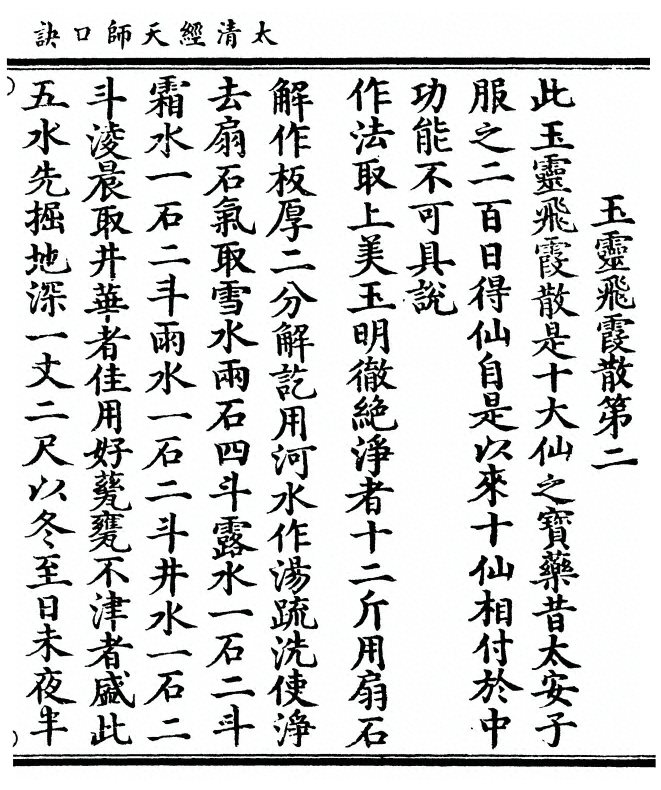 太清經天師口訣
玉靈飛霞散第二
此玉靈飛霞散是十大仙之寶藥昔太安子
服之二百日得仙自是以來十仙相付於中
功能不可具說
作法取上美玉明徹絕淨者十二斤用扇石
解作板厚二分解訖用河水作湯疏洗使淨
去扇石氣取雪水兩石四斗露水一石二斗
霜水一石二斗雨水一石二斗井水一石二
斗淩晨取井華者佳用好甆甕不津者盛此
五水先掘地深一丈二尺以冬至日未夜半